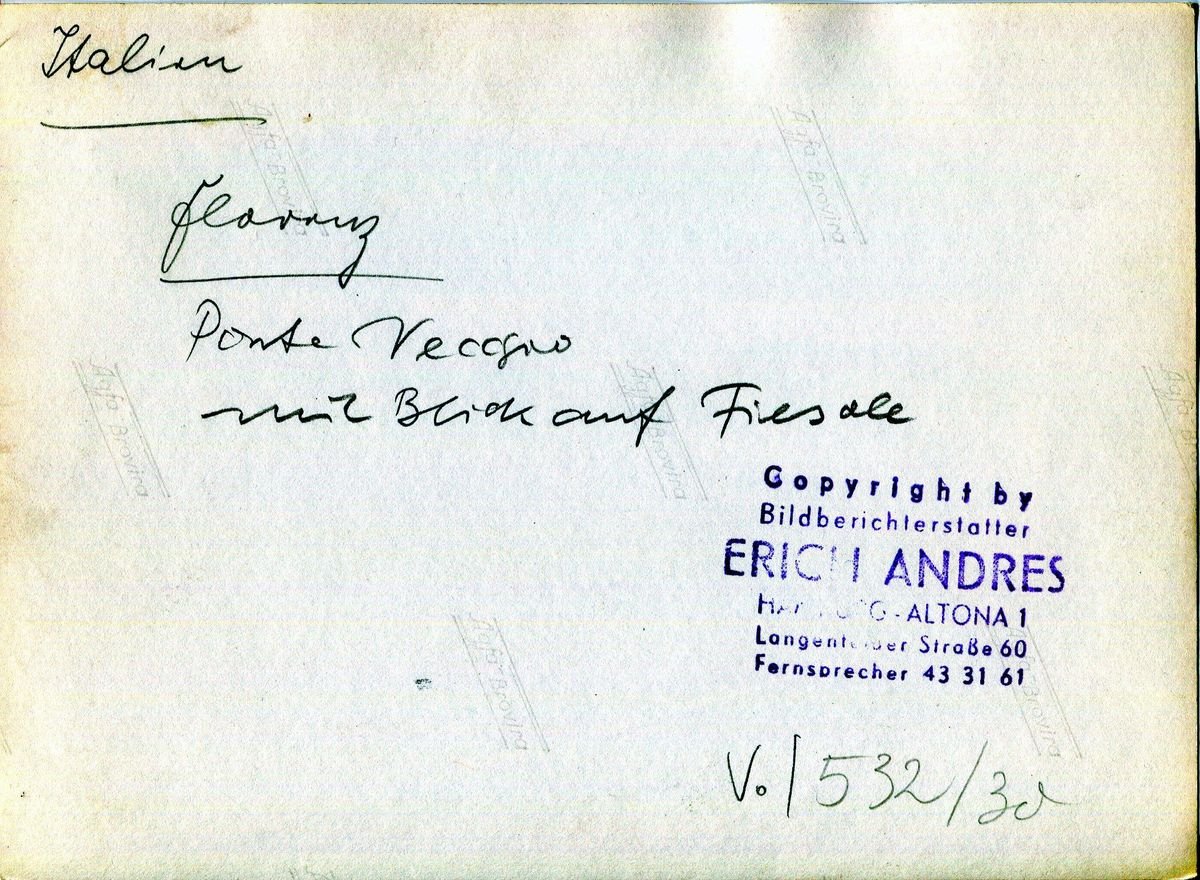 Italien
Florenz
Ponte Veccgio
mit Blick auf Fiesole
Copyright by
Bildberichterstatter
ERICH ANDRES
HAMBURG-ALTONA 1
Langenfelder Straße 60
Fernsprecher 43 31 61
Vo/532/30
Agfa Brovira
Agfa Brovira
Agfa Brovira
Agfa Brovira
Agfa Brovira